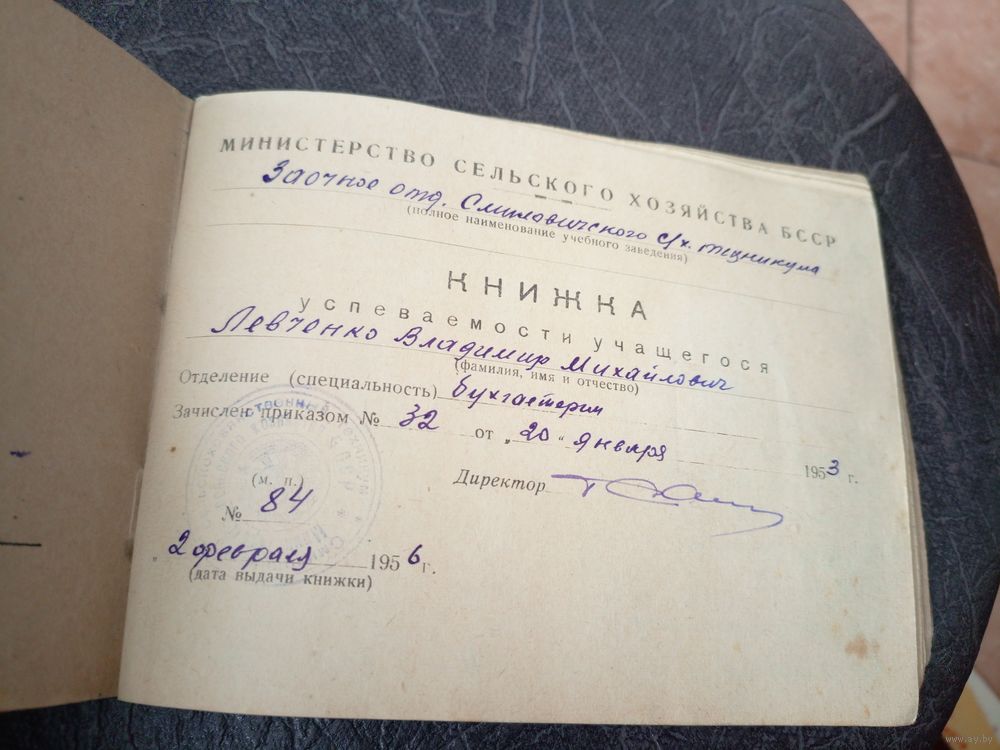 МИНИСТЕРСТВО СЕЛЬСКОГО ХОЗЯЙСТВА БССР
Заочное отд. Смиловичского с/х. техникума
(полное наименование учебного заведения)
КНИЖКА
успеваемости учащегося
Левченко Владимир Михайлович
(фамилия, имя и отчество)
Отделение (специальность) бухгалтерии
Зачислен приказом № 32 от „20“ января 1953 г.
(м. п.) Директор
№ 84
„2 февраля 1956 г.
(дата выдачи книжки)
www.ay.by